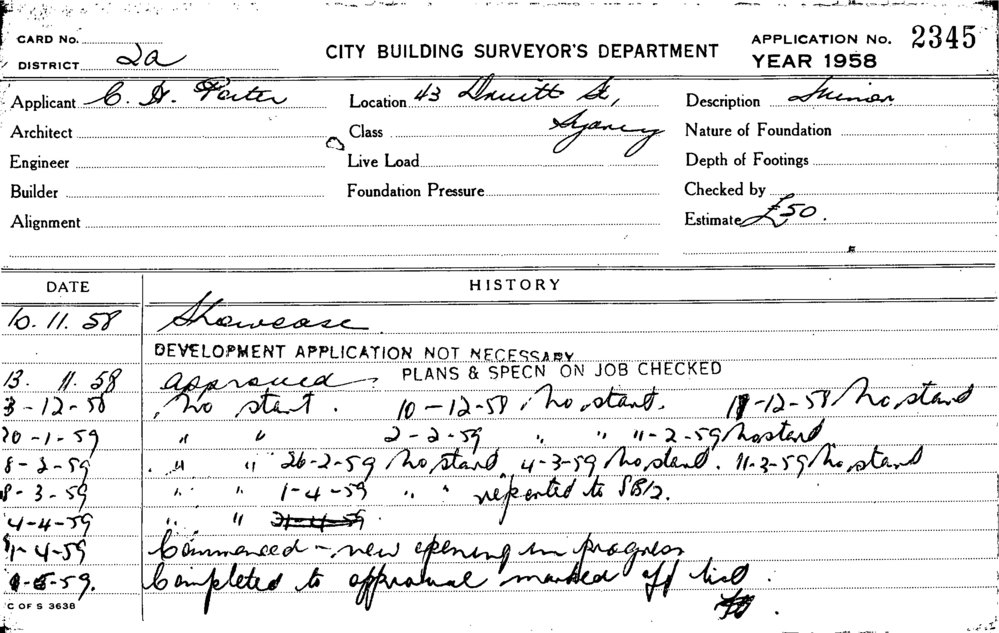 CARD No.
DISTRICT 2a
CITY BUILDING SURVEYOR'S DEPARTMENT
APPLICATION No. 2345
YEAR 1958
Applicant C. H. Porter
Location 43 Druitt St,
Sydney
Description Minor
Architect
Class
Nature of Foundation
Engineer
Live Load
Depth of Footings
Builder
Foundation Pressure
Checked by
Alignment
Estimate £50.
DATE HISTORY
10. 11. 58 Showcase
DEVELOPMENT APPLICATION NOT NECESSARY
PLANS & SPECN ON JOB CHECKED
13. 11. 58 approved.
3-12-58 No start. 10-12-58 No start. 17-12-58 No start
20-1-59 " " 2-2-59 " " 11-2-59 No start
8-2-59 " " 26-2-59 No start. 4-3-59 No start. 11-3-59 No start
8-3-59 " " 1-4-59 " " reported to SB/2.
4-4-59 " " 21-4-59.
1-4-59 Commenced - new opening in progress
-5-59. Completed to approval marked off list.
C OF S 3638